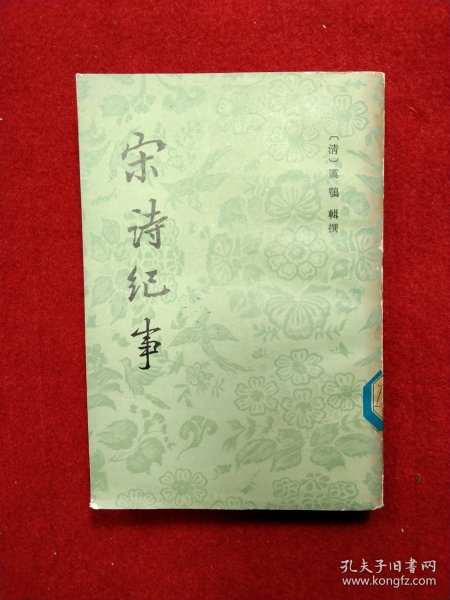 宋诗纪事
〔清〕厲鶚 輯撰
孔夫子旧书网
www.kongfz.com